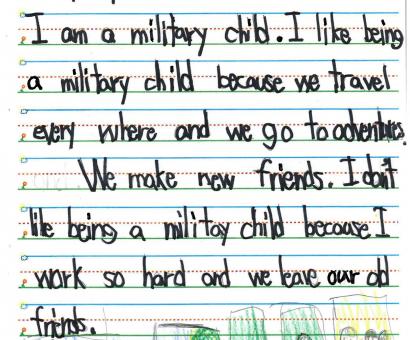 I am a military child. I like being
a military child because we travel
every where and we go to adventures.
We make new friends. I don't
like being a militay child because I
work so hard and we leave our old
friends.